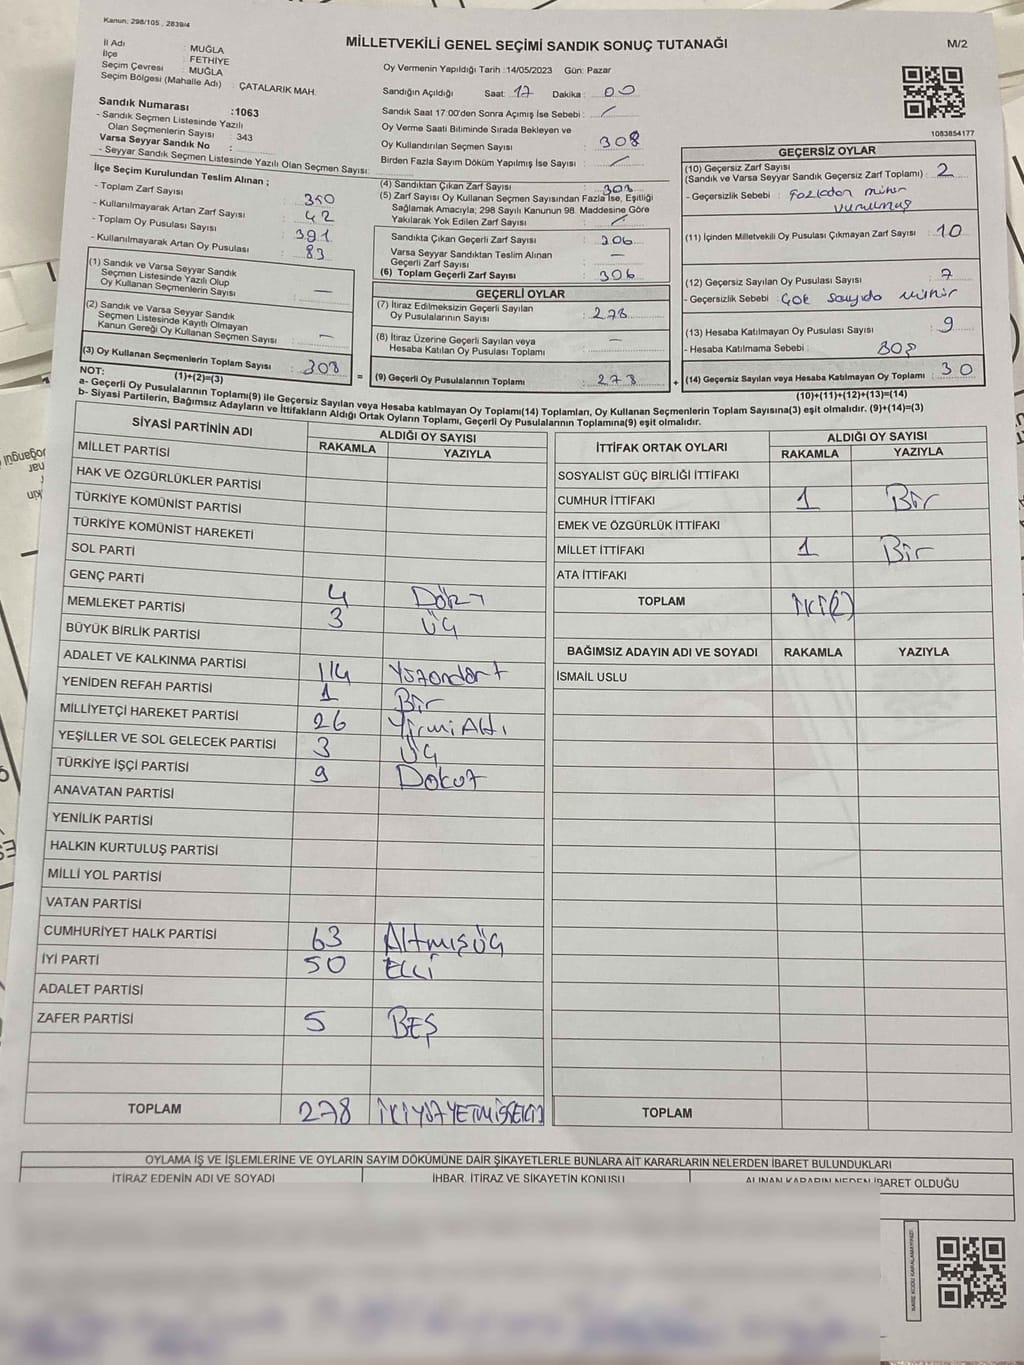 Kanun: 298/105 , 2839/4
MİLLETVEKİLİ GENEL SEÇİMİ SANDIK SONUÇ TUTANAĞI
M/2
İl Adı : MUĞLA
İlçe : FETHİYE
Seçim Çevresi : MUĞLA
Seçim Bölgesi (Mahalle Adı) : ÇATALARIK MAH.
Sandık Numarası :1063
- Sandık Seçmen Listesinde Yazılı
Olan Seçmenlerin Sayısı : 343
Varsa Seyyar Sandık No :
- Seyyar Sandık Seçmen Listesinde Yazılı Olan Seçmen Sayısı:
Oy Vermenin Yapıldığı Tarih :14/05/2023 Gün: Pazar
Sandığın Açıldığı Saat: 17 Dakika : 00
Sandık Saat 17:00'den Sonra Açımış İse Sebebi : /
Oy Verme Saati Bitiminde Sırada Bekleyen ve
Oy Kullandırılan Seçmen Sayısı : 308
Birden Fazla Sayım Döküm Yapılmış İse Sayısı : /
1083854177
İlçe Seçim Kurulundan Teslim Alınan ;
- Toplam Zarf Sayısı : 350
- Kullanılmayarak Artan Zarf Sayısı : 42
- Toplam Oy Pusulası Sayısı : 391
- Kullanılmayarak Artan Oy Pusulası : 83
(1) Sandık ve Varsa Seyyar Sandık
Seçmen Listesinde Yazılı Olup
Oy Kullanan Seçmenlerin Sayısı : —
(2) Sandık ve Varsa Seyyar Sandık
Seçmen Listesinde Kayıtlı Olmayan
Kanun Gereği Oy Kullanan Seçmen Sayısı : —
(3) Oy Kullanan Seçmenlerin Toplam Sayısı : 308
(1)+(2)=(3)
(4) Sandıktan Çıkan Zarf Sayısı : 308
(5) Zarf Sayısı Oy Kullanan Seçmen Sayısından Fazla İse, Eşitliği
Sağlamak Amacıyla; 298 Sayılı Kanunun 98. Maddesine Göre
Yakılarak Yok Edilen Zarf Sayısı : /
Sandıkta Çıkan Geçerli Zarf Sayısı : 306
Varsa Seyyar Sandıktan Teslim Alınan
Geçerli Zarf Sayısı : —
(6) Toplam Geçerli Zarf Sayısı : 306
GEÇERLİ OYLAR
(7) İtiraz Edilmeksizin Geçerli Sayılan
Oy Pusulalarının Sayısı : 278
(8) İtiraz Üzerine Geçerli Sayılan veya
Hesaba Katılan Oy Pusulası Toplamı : —
= (9) Geçerli Oy Pusulalarının Toplamı : 278 +
GEÇERSİZ OYLAR
(10) Geçersiz Zarf Sayısı
(Sandık ve Varsa Seyyar Sandık Geçersiz Zarf Toplamı) : 2
- Geçersizlik Sebebi : fazladan mühür
vurulmuş
(11) İçinden Milletvekili Oy Pusulası Çıkmayan Zarf Sayısı : 10
(12) Geçersiz Sayılan Oy Pusulası Sayısı : 7
- Geçersizlik Sebebi : Çok sayıda mühür
(13) Hesaba Katılmayan Oy Pusulası Sayısı : 9
- Hesaba Katılmama Sebebi : BOŞ
(14) Geçersiz Sayılan veya Hesaba Katılmayan Oy Toplamı : 30
(10)+(11)+(12)+(13)=(14)
NOT:
a- Geçerli Oy Pusulalarının Toplamı(9) ile Geçersiz Sayılan veya Hesaba katılmayan Oy Toplamı(14) Toplamları, Oy Kullanan Seçmenlerin Toplam Sayısına(3) eşit olmalıdır. (9)+(14)=(3)
b- Siyasi Partilerin, Bağımsız Adayların ve İttifakların Aldığı Ortak Oyların Toplamı, Geçerli Oy Pusulalarının Toplamına(9) eşit olmalıdır.
SİYASİ PARTİNİN ADI ALDIĞI OY SAYISI
RAKAMLA YAZIYLA
MİLLET PARTİSİ
HAK VE ÖZGÜRLÜKLER PARTİSİ
TÜRKİYE KOMÜNİST PARTİSİ
TÜRKİYE KOMÜNİST HAREKETİ
SOL PARTİ
GENÇ PARTİ 4 Dört
MEMLEKET PARTİSİ 3 Üç
BÜYÜK BİRLİK PARTİSİ
ADALET VE KALKINMA PARTİSİ 114 Yüzondört
YENİDEN REFAH PARTİSİ 1 Bir
MİLLİYETÇİ HAREKET PARTİSİ 26 Yirmi Altı
YEŞİLLER VE SOL GELECEK PARTİSİ 3 Üç
TÜRKİYE İŞÇİ PARTİSİ 9 Dokuz
ANAVATAN PARTİSİ
YENİLİK PARTİSİ
HALKIN KURTULUŞ PARTİSİ
MİLLİ YOL PARTİSİ
VATAN PARTİSİ
CUMHURİYET HALK PARTİSİ 63 Altmışüç
İYİ PARTİ 50 ELLİ
ADALET PARTİSİ
ZAFER PARTİSİ 5 BEŞ
TOPLAM 278 İKİYÜZYETMİŞSEKİZ
İTTİFAK ORTAK OYLARI ALDIĞI OY SAYISI
RAKAMLA YAZIYLA
SOSYALİST GÜÇ BİRLİĞİ İTTİFAKI
CUMHUR İTTİFAKI 1 Bir
EMEK VE ÖZGÜRLÜK İTTİFAKI
MİLLET İTTİFAKI 1 Bir
ATA İTTİFAKI
TOPLAM İKİ(2)
BAĞIMSIZ ADAYIN ADI VE SOYADI RAKAMLA YAZIYLA
İSMAİL USLU
TOPLAM
OYLAMA İŞ VE İŞLEMLERİNE VE OYLARIN SAYIM DÖKÜMÜNE DAİR ŞİKAYETLERLE BUNLARA AİT KARARLARIN NELERDEN İBARET BULUNDUKLARI
İTİRAZ EDENİN ADI VE SOYADI İHBAR, İTİRAZ VE ŞİKAYETİN KONUSU ALINAN KARARIN NEDEN İBARET OLDUĞU
KARE KODU KARALAMAYINIZ!